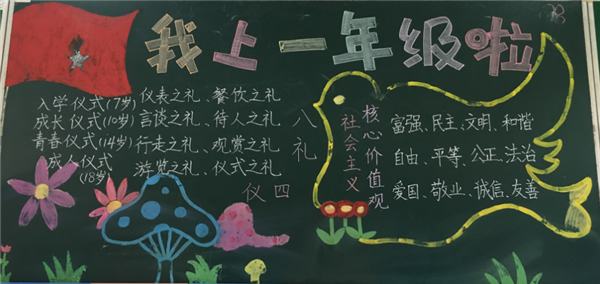 我上一年级啦
入学仪式(7岁)
成长仪式(10岁)
青春仪式(14岁)
成人仪式
(18岁)
仪表之礼、餐饮之礼
言谈之礼、待人之礼
行走之礼、观赏之礼
游览之礼、仪式之礼
八礼
四仪
社会主义
核心价值观
富强、民主、文明、和谐
自由、平等、公正、法治
爱国、敬业、诚信、友善